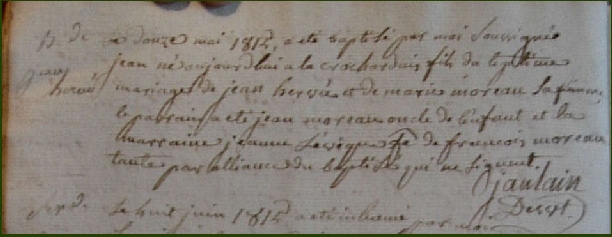 B. de jean hervé
Le douze mai 1812, a été baptisé par moi soussigné
jean né aujourd'hui a la crochardais fils du légitime
mariage de jean hervée et de marie moreau sa femme,
le parrain a été jean moreau oncle de l'enfant et la
marraine jeanne Lévêque fe de francois moreau
tante par alliance du baptisé qui ne signent
jaulain
Desst.
Le huit juin 1812 a été inhumé par moi